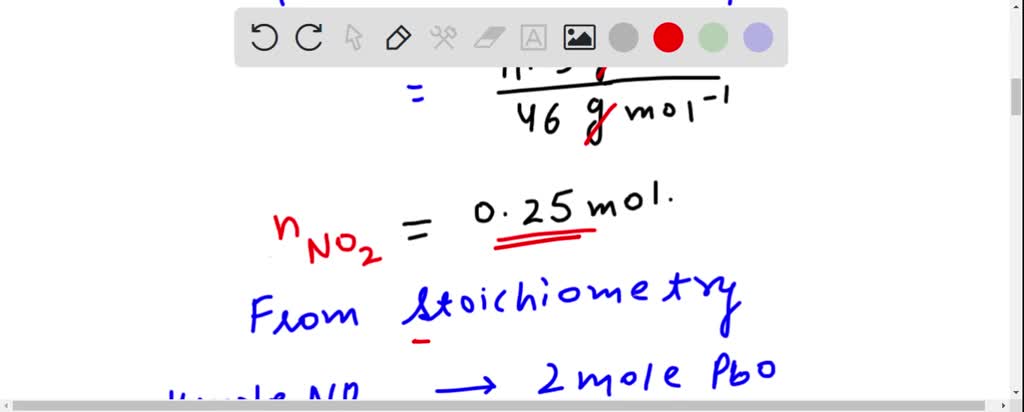 =
46 g mol⁻¹
n NO₂ = 0.25 mol.
From stoichiometry
→ 2 mole PbO